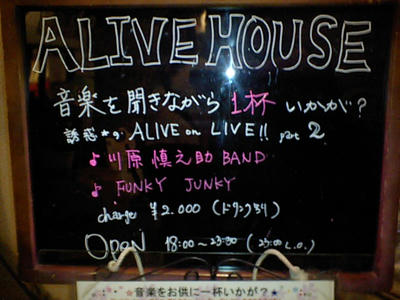 ALIVE HOUSE
音楽を聞きながら1杯いかが?
誘惑*の ALIVE on LIVE!! part 2
♪川原慎之助 BAND
♪ FUNKY JUNKY
charge ¥2.000 (ドリンク別)
Open 18:00～23:30 (23:00 L.O.)
☆音楽をお供に一杯いかが?★